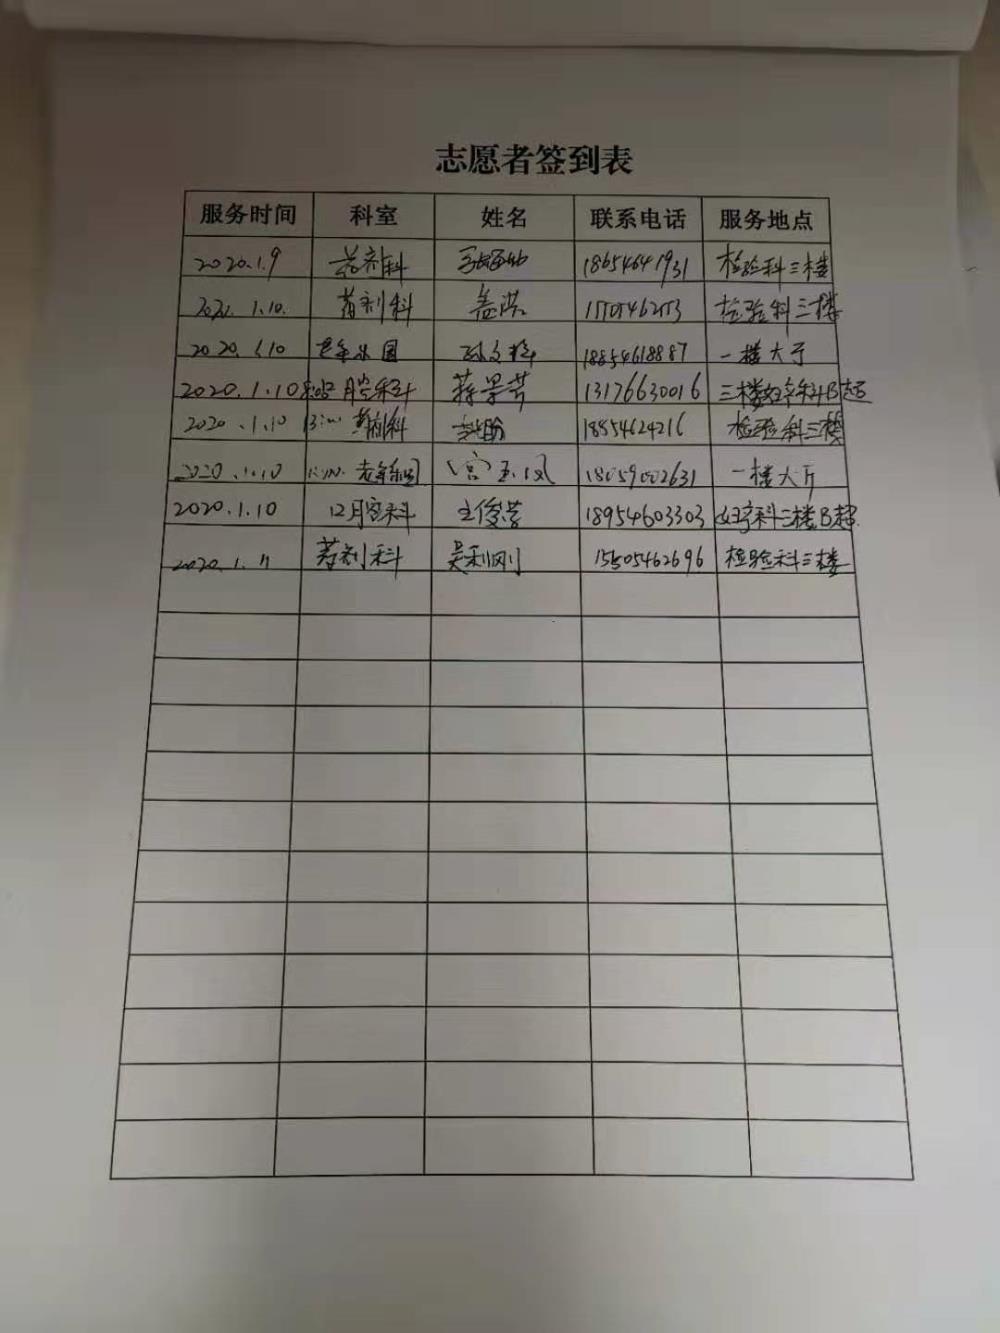 志愿者签到表
服务时间 科室 姓名 联系电话 服务地点
2020.1.9 药剂科 18654641931 检验科三楼
1.10. 药剂科 盖洪 检验科三楼
2020.1.10 18854618887 一楼大厅
2020.1.10 口腔科 蒋景芳 13176630016 三楼妇产科B超
2020.1.10 药剂科 18854624216 检验科三楼
2020.1.10 宫玉凤 18059002631 一楼大厅
2020.1.10 口腔科 王俊芳 18954603303 妇产科三楼B超
2020.1.11 药剂科 吴利刚 15505462696 检验科三楼